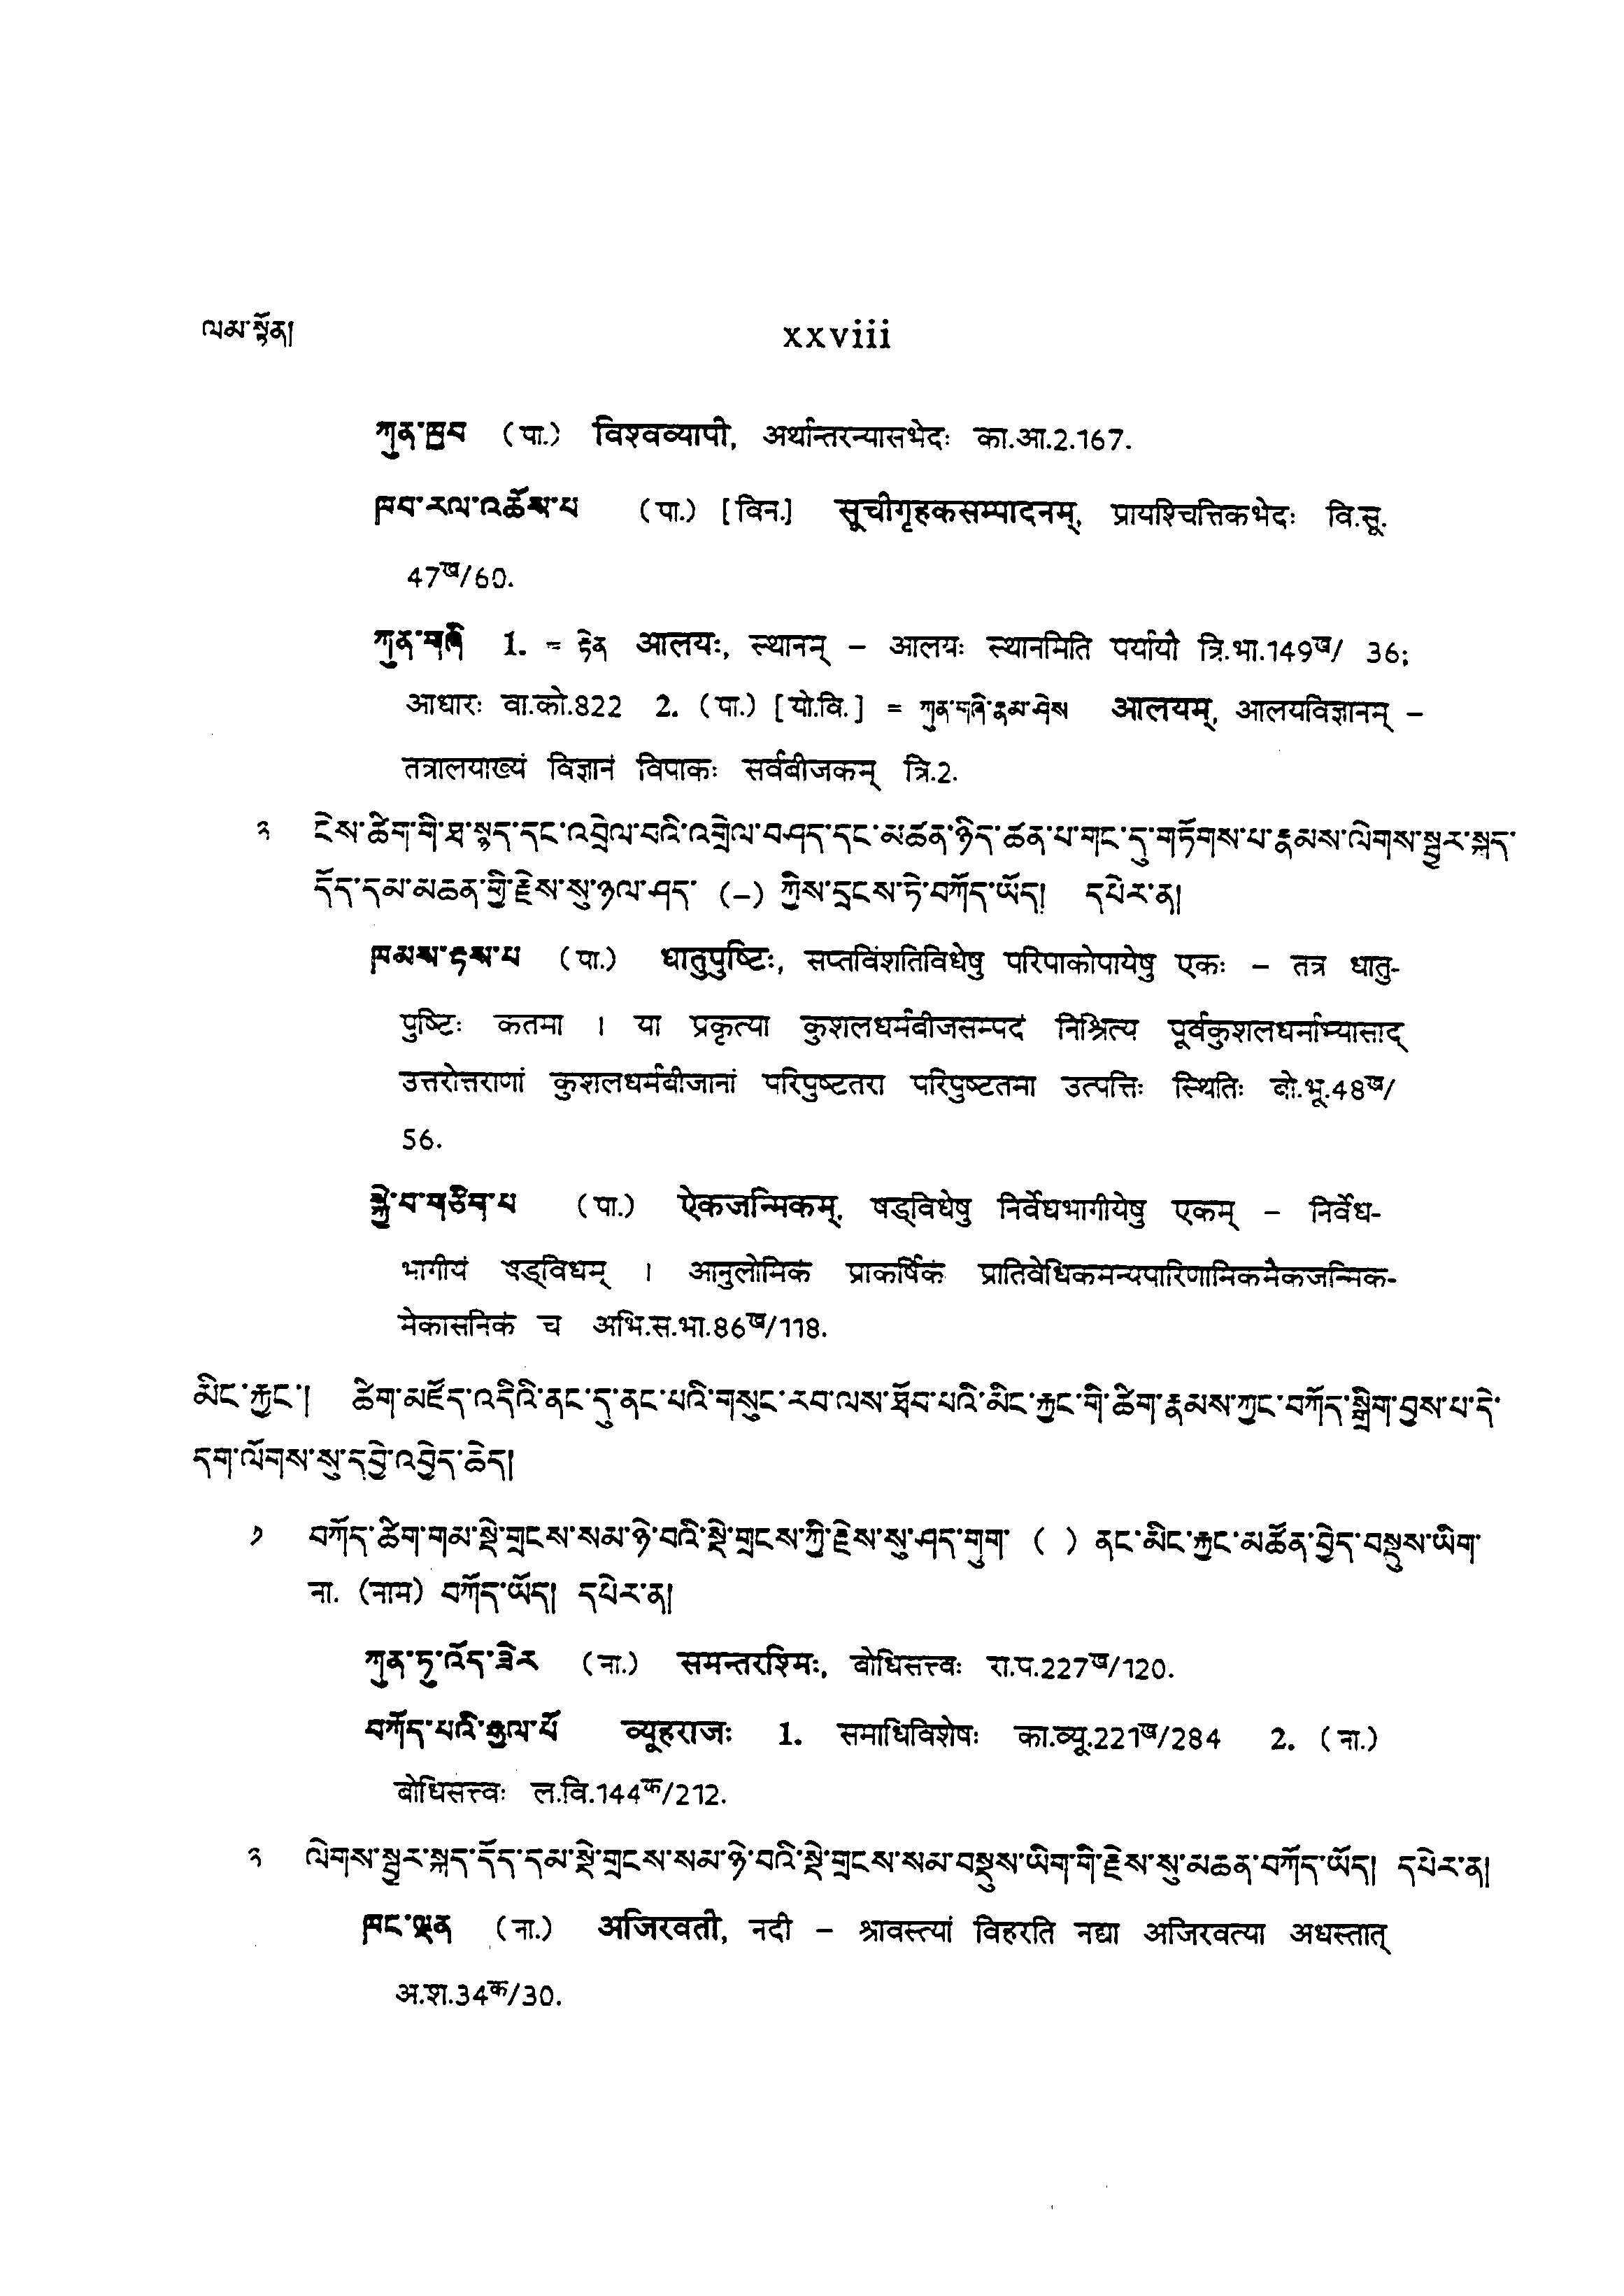 ལམ་སྟོན།
xxviii
ཀུན་ཁྱབ (पा.) विश्वव्यापी, अर्थान्तरन्यासभेदः का.आ.2.167.
ཁབ་རལ་འཆོས་པ (पा.) [विन.] सूचीगृहकसम्पादनम्, प्रायश्चित्तिकभेदः वि.सू.
47ख/60.
ཀུན་གཞི 1. = རྟེན आलयः, स्थानम् – आलयः स्थानमिति पर्यायौ त्रि.भा.149ख/ 36;
आधारः वा.को.822 2. (पा.) [यो.वि.] = ཀུན་གཞི་རྣམ་ཤེས आलयम्, आलयविज्ञानम् –
तत्रालयाख्यं विज्ञानं विपाकः सर्वबीजकम् त्रि.2.
༢ ངེས་ཚིག་གི་ཐ་སྙད་དང་འབྲེལ་བའི་འགྲེལ་བཤད་དང་མཚན་ཉིད་ཚན་པ་གང་དུ་གཏོགས་པ་རྣམས་ལེགས་སྦྱར་སྐད་
དོད་དམ་མཆན་གྱི་རྗེས་སུ་ཉལ་ཤད་ (–) ཀྱིས་དྲངས་ཏེ་བཀོད་ཡོད། དཔེར་ན།
ཁམས་རྟས་པ (पा.) धातुपुष्टिः, सप्तविंशतिविधेषु परिपाकोपायेषु एकः – तत्र धातु-
पुष्टिः कतमा । या प्रकृत्या कुशलधर्मबीजसम्पदं निश्रित्य पूर्वकुशलधर्माभ्यासाद्
उत्तरोत्तराणां कुशलधर्मबीजानां परिपुष्टतरा परिपुष्टतमा उत्पत्तिः स्थितिः बो.भू.48ख/
56.
སྐྱེ་བ་གཅིག་པ (पा.) ऐकजन्मिकम्, षड्विधेषु निर्वेधभागीयेषु एकम् – निर्वेध-
भागीयं षड्विधम् । आनुलोमिकं प्राकर्षिकं प्रातिवेधिकमन्यपारिणामिकमैकजन्मिक-
मेकासनिकं च अभि.स.भा.86ख/118.
མིང་རྐྱང་། ཚིག་མཛོད་འདིའི་ནང་དུ་ནང་པའི་གསུང་རབ་ལས་ཐོབ་པའི་མིང་རྐྱང་གི་ཚིག་རྣམས་ཀྱང་བཀོད་སྒྲིག་བྱས་པ་དེ་
དག་ལོགས་སུ་དབྱེ་འབྱེད་ཆེད།
༡ བཀོད་ཚིག་གམ་སྡེ་གྲངས་སམ་ཉེ་བའི་སྡེ་གྲངས་ཀྱི་རྗེས་སུ་ཤད་གུག་ ( ) ནང་མིང་རྐྱང་མཚོན་བྱེད་བསྡུས་ཡིག་
ना. (नाम) བཀོད་ཡོད། དཔེར་ན།
ཀུན་ཏུ་འོད་ཟེར (ना.) समन्तरश्मिः, बोधिसत्त्वः रा.प.227ख/120.
བཀོད་པའི་རྒྱལ་པོ व्यूहराजः 1. समाधिविशेषः का.व्यू.221ख/284 2. (ना.)
बोधिसत्त्वः ल.वि.144क/212.
༢ ལེགས་སྦྱར་སྐད་དོད་དམ་སྡེ་གྲངས་སམ་ཉེ་བའི་སྡེ་གྲངས་སམ་བསྡུས་ཡིག་གི་རྗེས་སུ་མཆན་བཀོད་ཡོད། དཔེར་ན།
ཁང་ལྡན (ना.) अजिरवती, नदी – श्रावस्त्यां विहरति नद्या अजिरवत्या अधस्तात्
अ.श.34क/30.